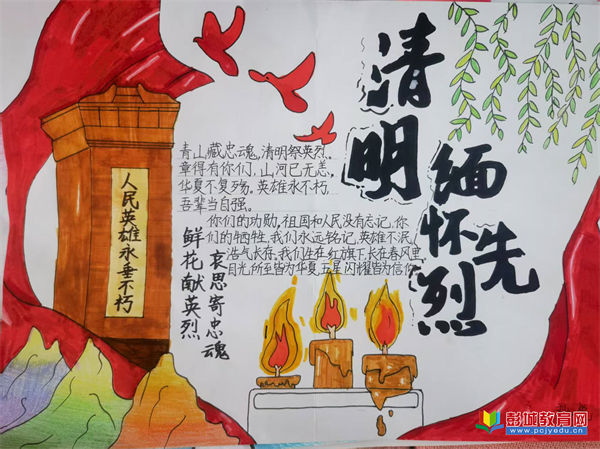 清明
缅怀先烈
青山藏忠魂,清明祭英烈。
幸得有你们,山河已无恙,
华夏不复殇,英雄永不朽,
吾辈当自强。
你们的功勋,祖国和人民没有忘记,你
们的牺牲,我们永远铭记,英雄不泯,
浩气长存,我们生在红旗下,长在春风里
目光所至皆为华夏,五星闪耀皆为信仰
人民英雄永垂不朽
哀思寄忠魂
鲜花献英烈
彭城教育网
www.pcjyedu.cn